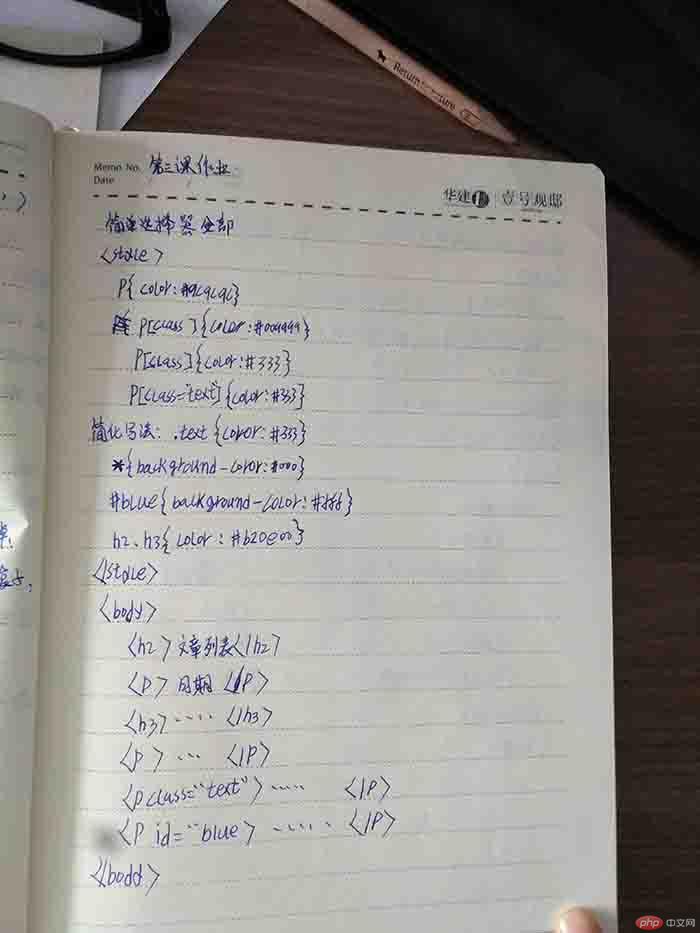 Return
Memo No. 第三课作业
Date
华建 壹号观邸
简单选择器全部
<style>
P{color:#9c9c9c}
P[class]{color:#009999}
P[class]{color:#333}
P[class="text"]{color:#333}
简化写法: .text{color:#333}
*{background-color:#000}
#blue{background-color:#fff}
h2、h3{color:#b20e00}
</style>
<body>
<h2>文章列表</h2>
<P>日期</P>
<h3>.....</h3>
<P>...</P>
<P class="text">.....</P>
<P id="blue>......</P>
</bodd>
php 中文网